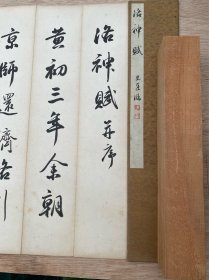 洛神賦
洛神賦并序
黃初三年余朝
京師還濟洛川